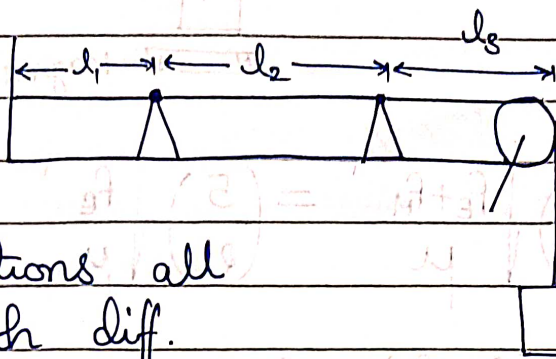 l₁ l₂ l₃
tions all
h diff.